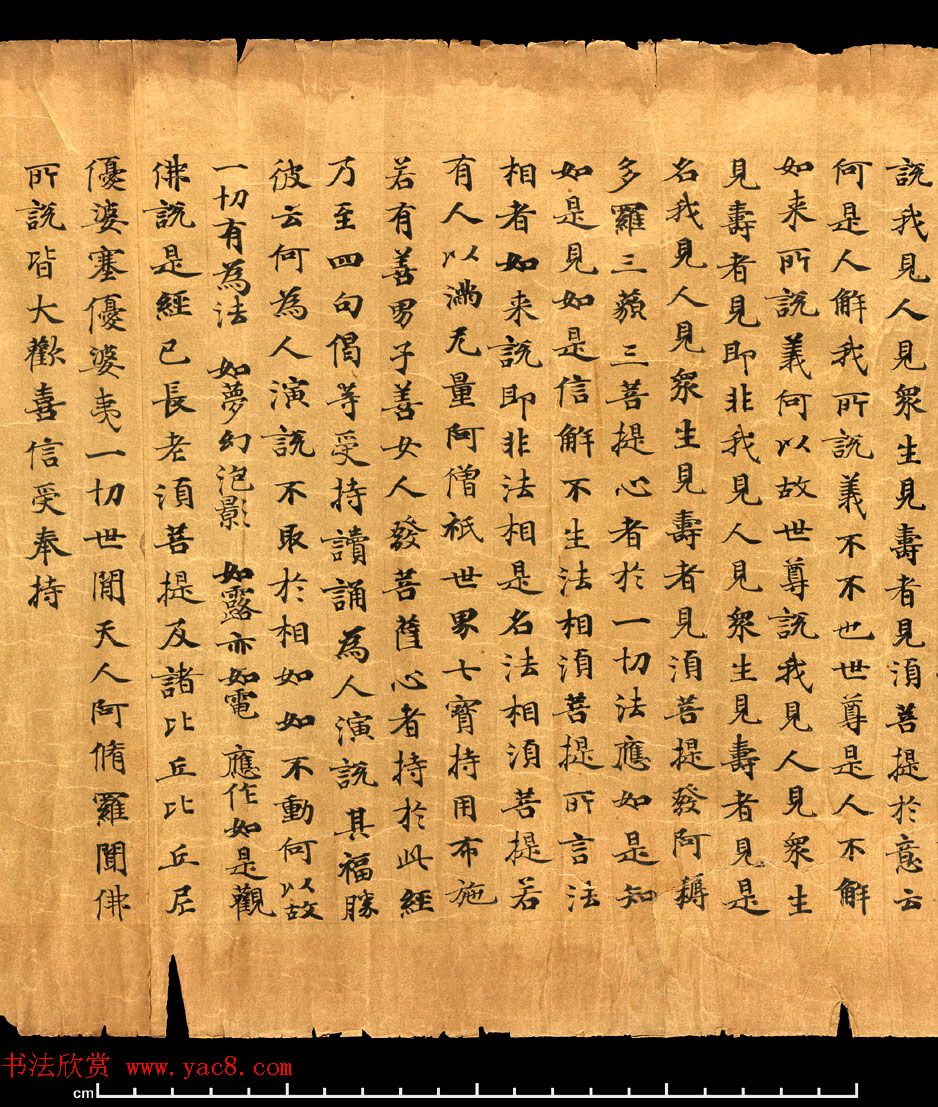 說我見人見衆生見壽者見湏菩提於意云
何是人解我所說義不不也世尊是人不解
如来所說義何以故世尊說我見人見衆生
見壽者見即非我見人見衆生見壽者見是
名我見人見衆生見壽者見湏菩提發阿耨
多羅三藐三菩提心者於一切法應如是知
如是見如是信解不生法相湏菩提所言法
相者如来說即非法相是名法相湏菩提若
有人以滿无量阿僧祇世界七寶持用布施
若有善男子善女人發菩薩心者持於此經
乃至四句偈等受持讀誦為人演說其福勝
彼云何為人演說不取於相如如不動何以故
一切有為法 如夢幻泡影 如露亦如電 應作如是觀
佛說是經已長老湏菩提及諸比丘比丘尼
優婆塞優婆夷一切世間天人阿脩羅聞佛
所說皆大歡喜信受奉持
书法欣赏 www.yac8.com
cm